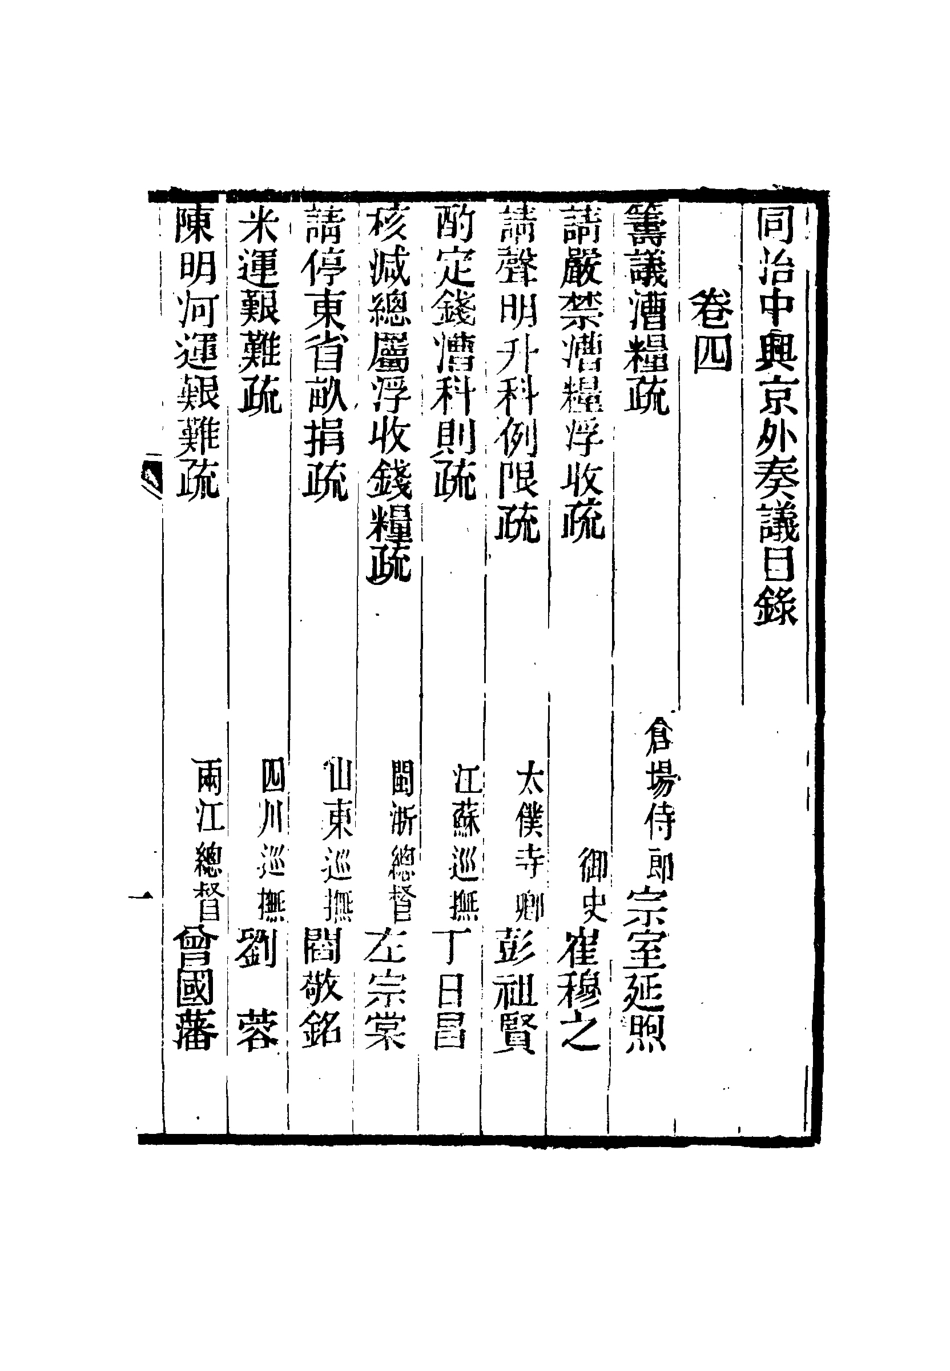 同治中興京外奏議目錄
卷四
籌議漕糧疏 倉場侍郎宗室延煦
請嚴禁漕糧浮收疏 御史崔穆之
請聲明升科例限疏 太僕寺卿彭祖賢
酌定錢漕科則疏 江蘇巡撫丁日昌
核減總屬浮收錢糧疏 閩浙總督左宗棠
請停東省畝捐疏 山東巡撫閻敬銘
米運艱難疏 四川巡撫劉蓉
陳明河運艱難疏 兩江總督曾國藩
一